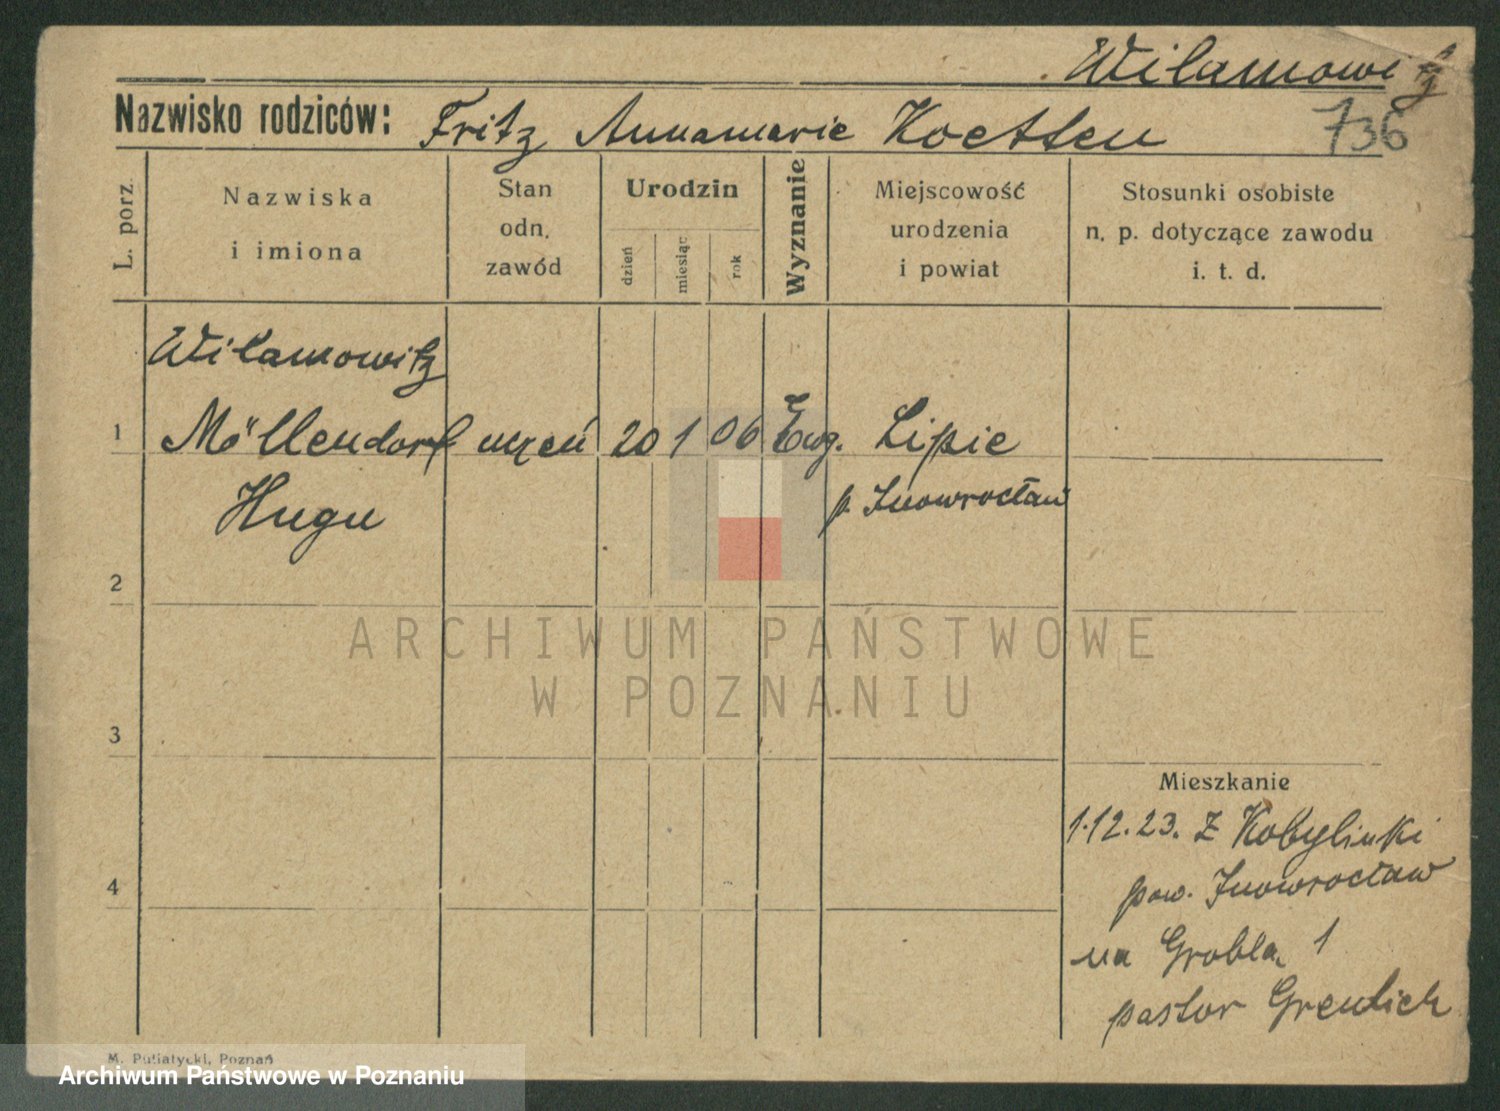 Wilamowitz
Nazwisko rodziców: Fritz Annamarie Koetten
736
L. porz.
Nazwiska
i imiona
Stan
odn.
zawód
Urodzin
dzień
miesiąc
rok
Wyznanie
Miejscowość
urodzenia
i powiat
Stosunki osobiste
n. p. dotyczące zawodu
i. t. d.
Wilamowitz
1 Möllendorf uczeń 20 1 06 Ewg. Lipie
Hugu p. Inowrocław
2
ARCHIWUM PAŃSTWOWE
W POZNANIU
3
Mieszkanie
1.12.23. Z Kobylinki
4
pow. Inowrocław
na Grobla 1
pastor Greulich
M. Putiatycki, Poznań
Archiwum Państwowe w Poznaniu